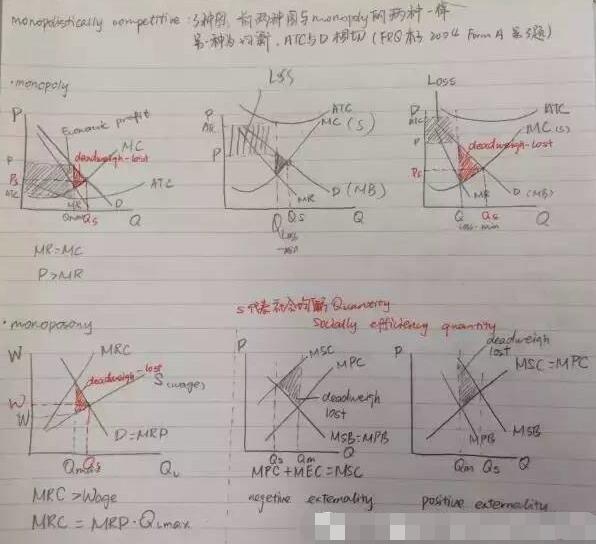 monopolistically competitive: 3种图, 前两种图与monopoly的两种一样
第一种为均衡, ATC与D相切 (FRQ 2004 Form 第3题)
·monopoly
Loss
Loss
P
Economic profit
MC
deadweigh-lost
P
Ps
ATC
ATC
MR
D
Qm
Qs
Q
P
ATC
P
ATC
MC(S)
D(MB)
MR
Q
Qs
Q
Loss
-min
ATC
Ps
ATC
MC(S)
deadweigh-lost
D(MB)
MR
Q
Qs
Q
loss-min
MR=MC
P>MR
s代表社会的 Quantity
socially efficiency quantity
·monoposony
W
MRC
deadweigh-lost
S(wages)
W
W
D=MRP
Qs
MRC >Wage
MRC = MRP·QLmax
P
MSC
MPC
deadweigh
lost
MSB=MPB
Qs
Qm
Q
MPC+MEC=MSC
negetive externality
P
deadweigh
lost
MSC=MPC
MPB
MSB
Qm
Qs
Q
positive externality